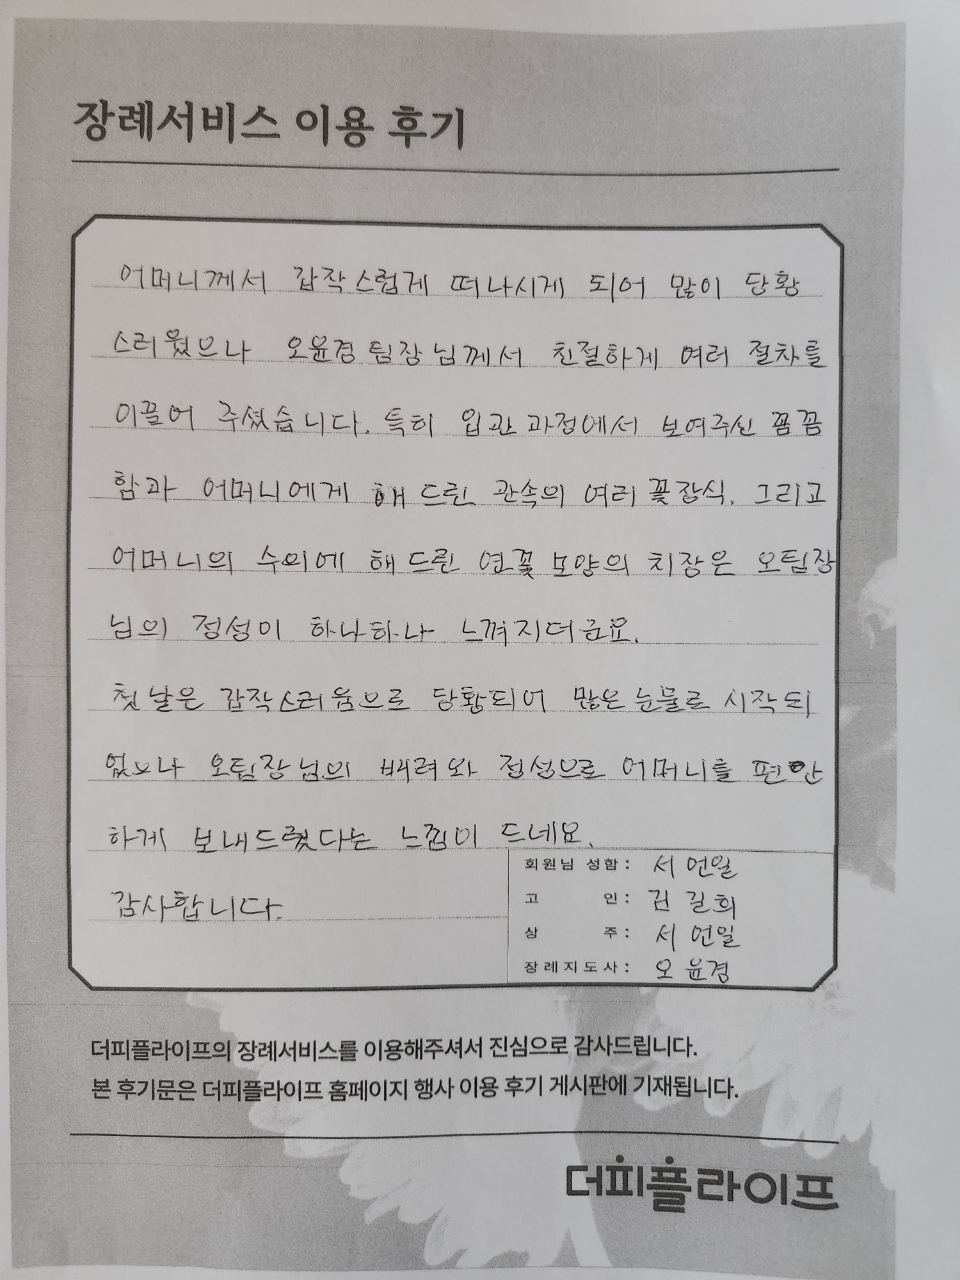 장례서비스 이용 후기
어머니께서 갑작스럽게 떠나시게 되어 많이 당황
스러웠으나 오윤경 팀장님께서 친절하게 여러 절차를
이끌어 주셨습니다. 특히 입관 과정에서 보여주신 꼼꼼
함과 어머니에게 해 드린 관속의 여러 꽃장식. 그리고
어머니의 수의에 해 드린 연꽃 모양의 치장은 오팀장
님의 정성이 하나하나 느껴지더군요.
첫 날은 갑작스러움으로 당황되어 많은 눈물로 시작되
었으나 오팀장님의 배려와 정성으로 어머니를 편안
하게 보내드렸다는 느낌이 드네요.
감사합니다.
회원님 성함: 서언일
고 인: 김길희
상 주: 서언일
장례지도사: 오윤경
더피플라이프의 장례서비스를 이용해주셔서 진심으로 감사드립니다.
본 후기문은 더피플라이프 홈페이지 행사 이용 후기 게시판에 기재됩니다.
더피플라이프